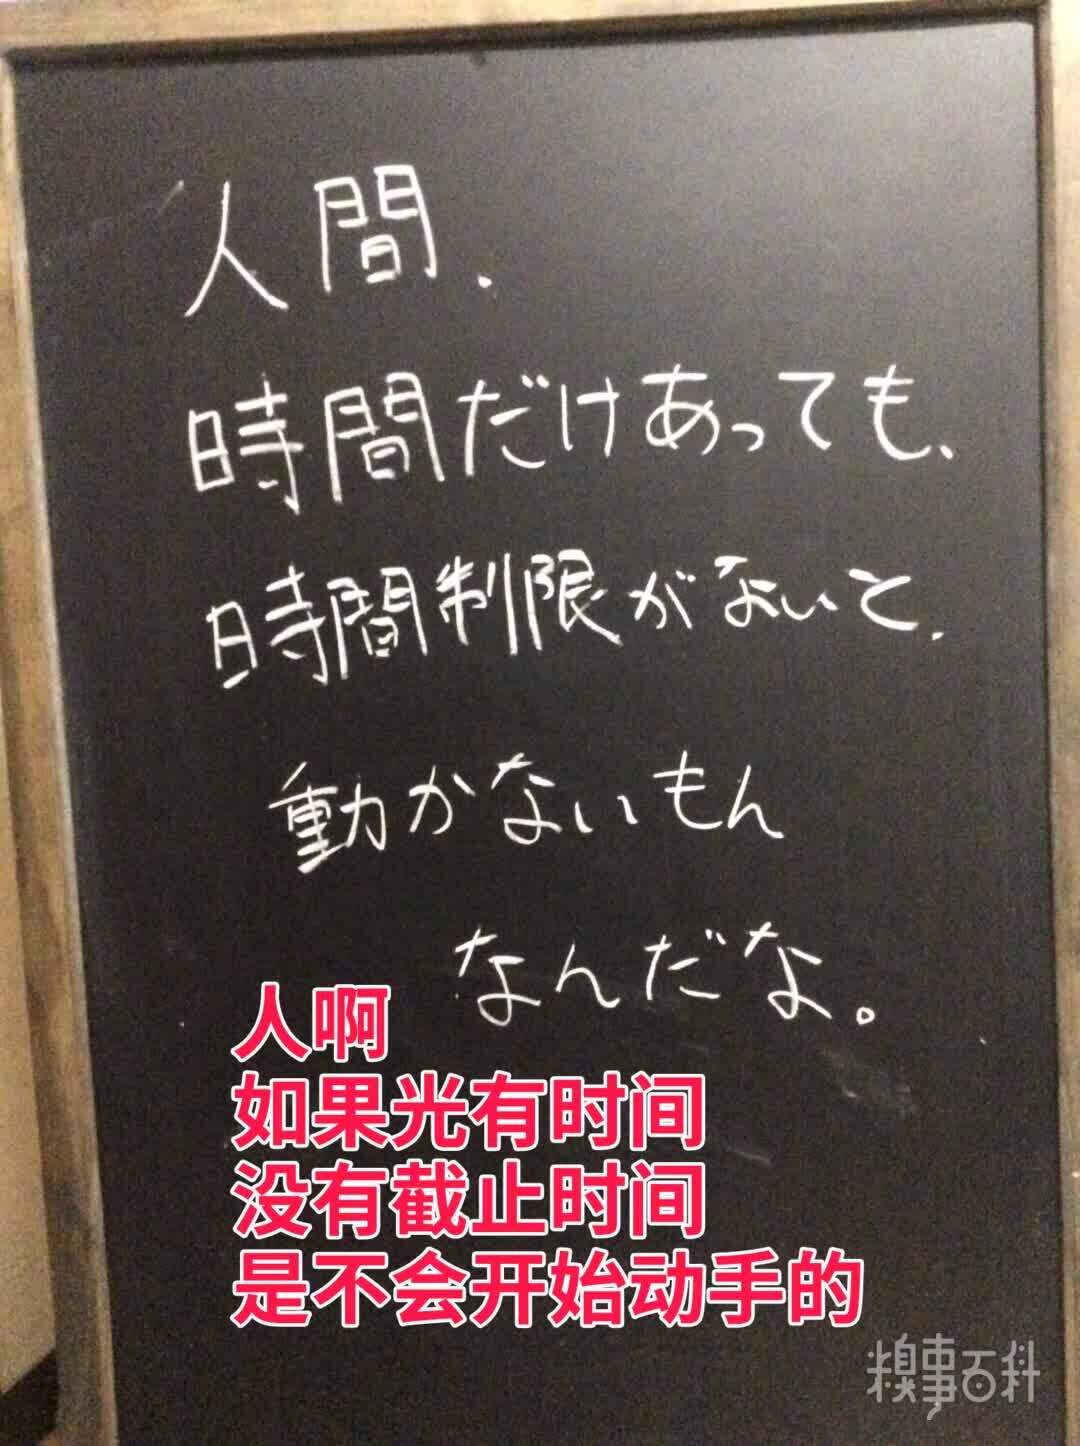 人間.
時間だけあっても、
時間制限がないと.
動かないもん
なんだな。
人啊
如果光有时间
没有截止时间
是不会开始动手的
糗事百科